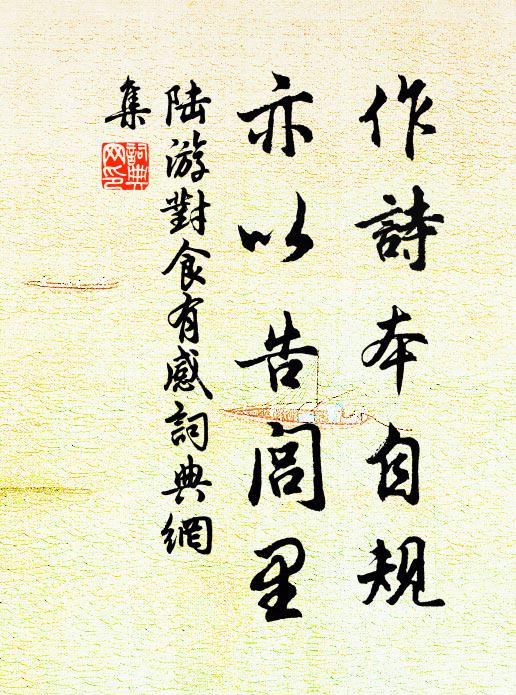 作詩本自規
亦以告閭里
陆游對食有感詞典網
集
詞典网印